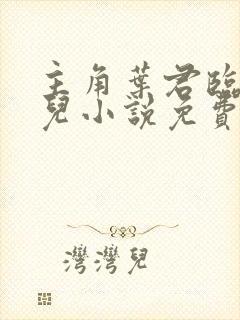 主角葉君臨
兒小說免費
灣灣兒